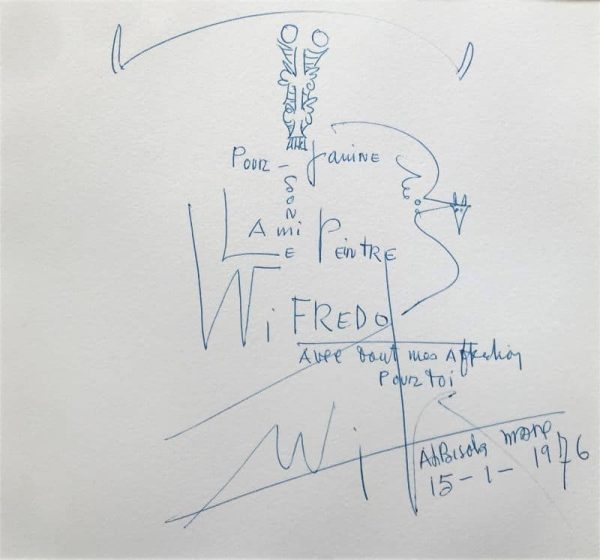 Pour - Janine
L Ami Peintre
WiFREDO
Avec tout mes Affection
Pour toi
Wi
Albisola mare
15-1-1976